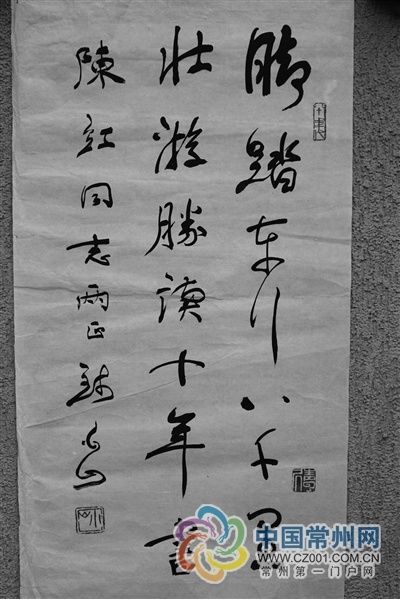 脚踏车行八千里
壮游勝读十年書
陳红同志雨正
中国常州网
WWW.CZ001.COM.CN
常州第一门户网